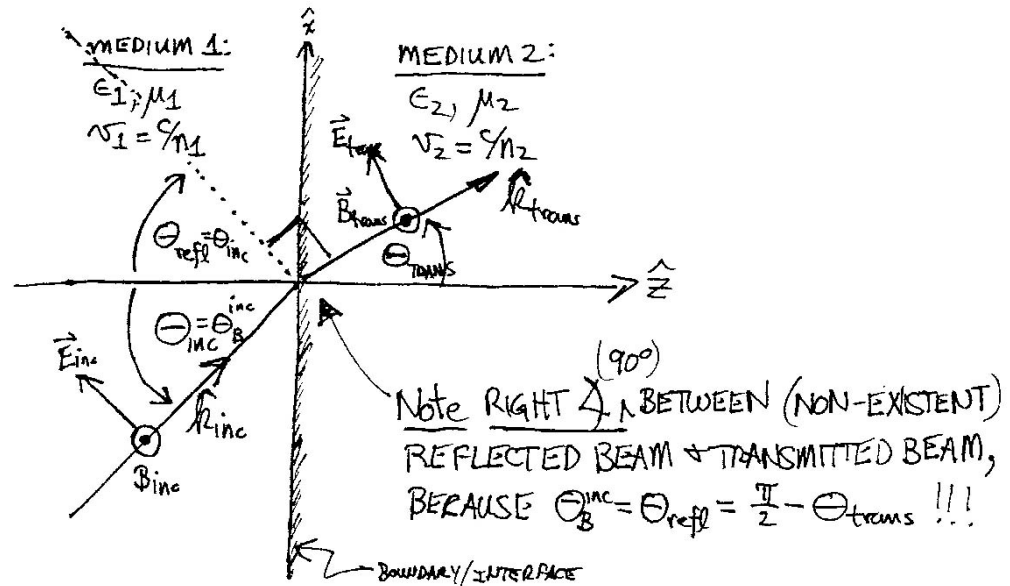 x̂
MEDIUM 1:
ϵ1, μ1
v1 = c/n1
MEDIUM 2:
ϵ2, μ2
v2 = c/n2
E⃗trans
B⃗trans
k̂trans
Θrefl=Θinc
ΘTRANS
ẑ
Θinc=ΘB^inc
E⃗inc
k̂inc
Binc
(90°)
Note RIGHT ∡ BETWEEN (NON-EXISTENT)
REFLECTED BEAM & TRANSMITTED BEAM,
BECAUSE ΘB^inc = Θrefl = π/2 - Θtrans !!!
BOUNDARY/INTERFACE